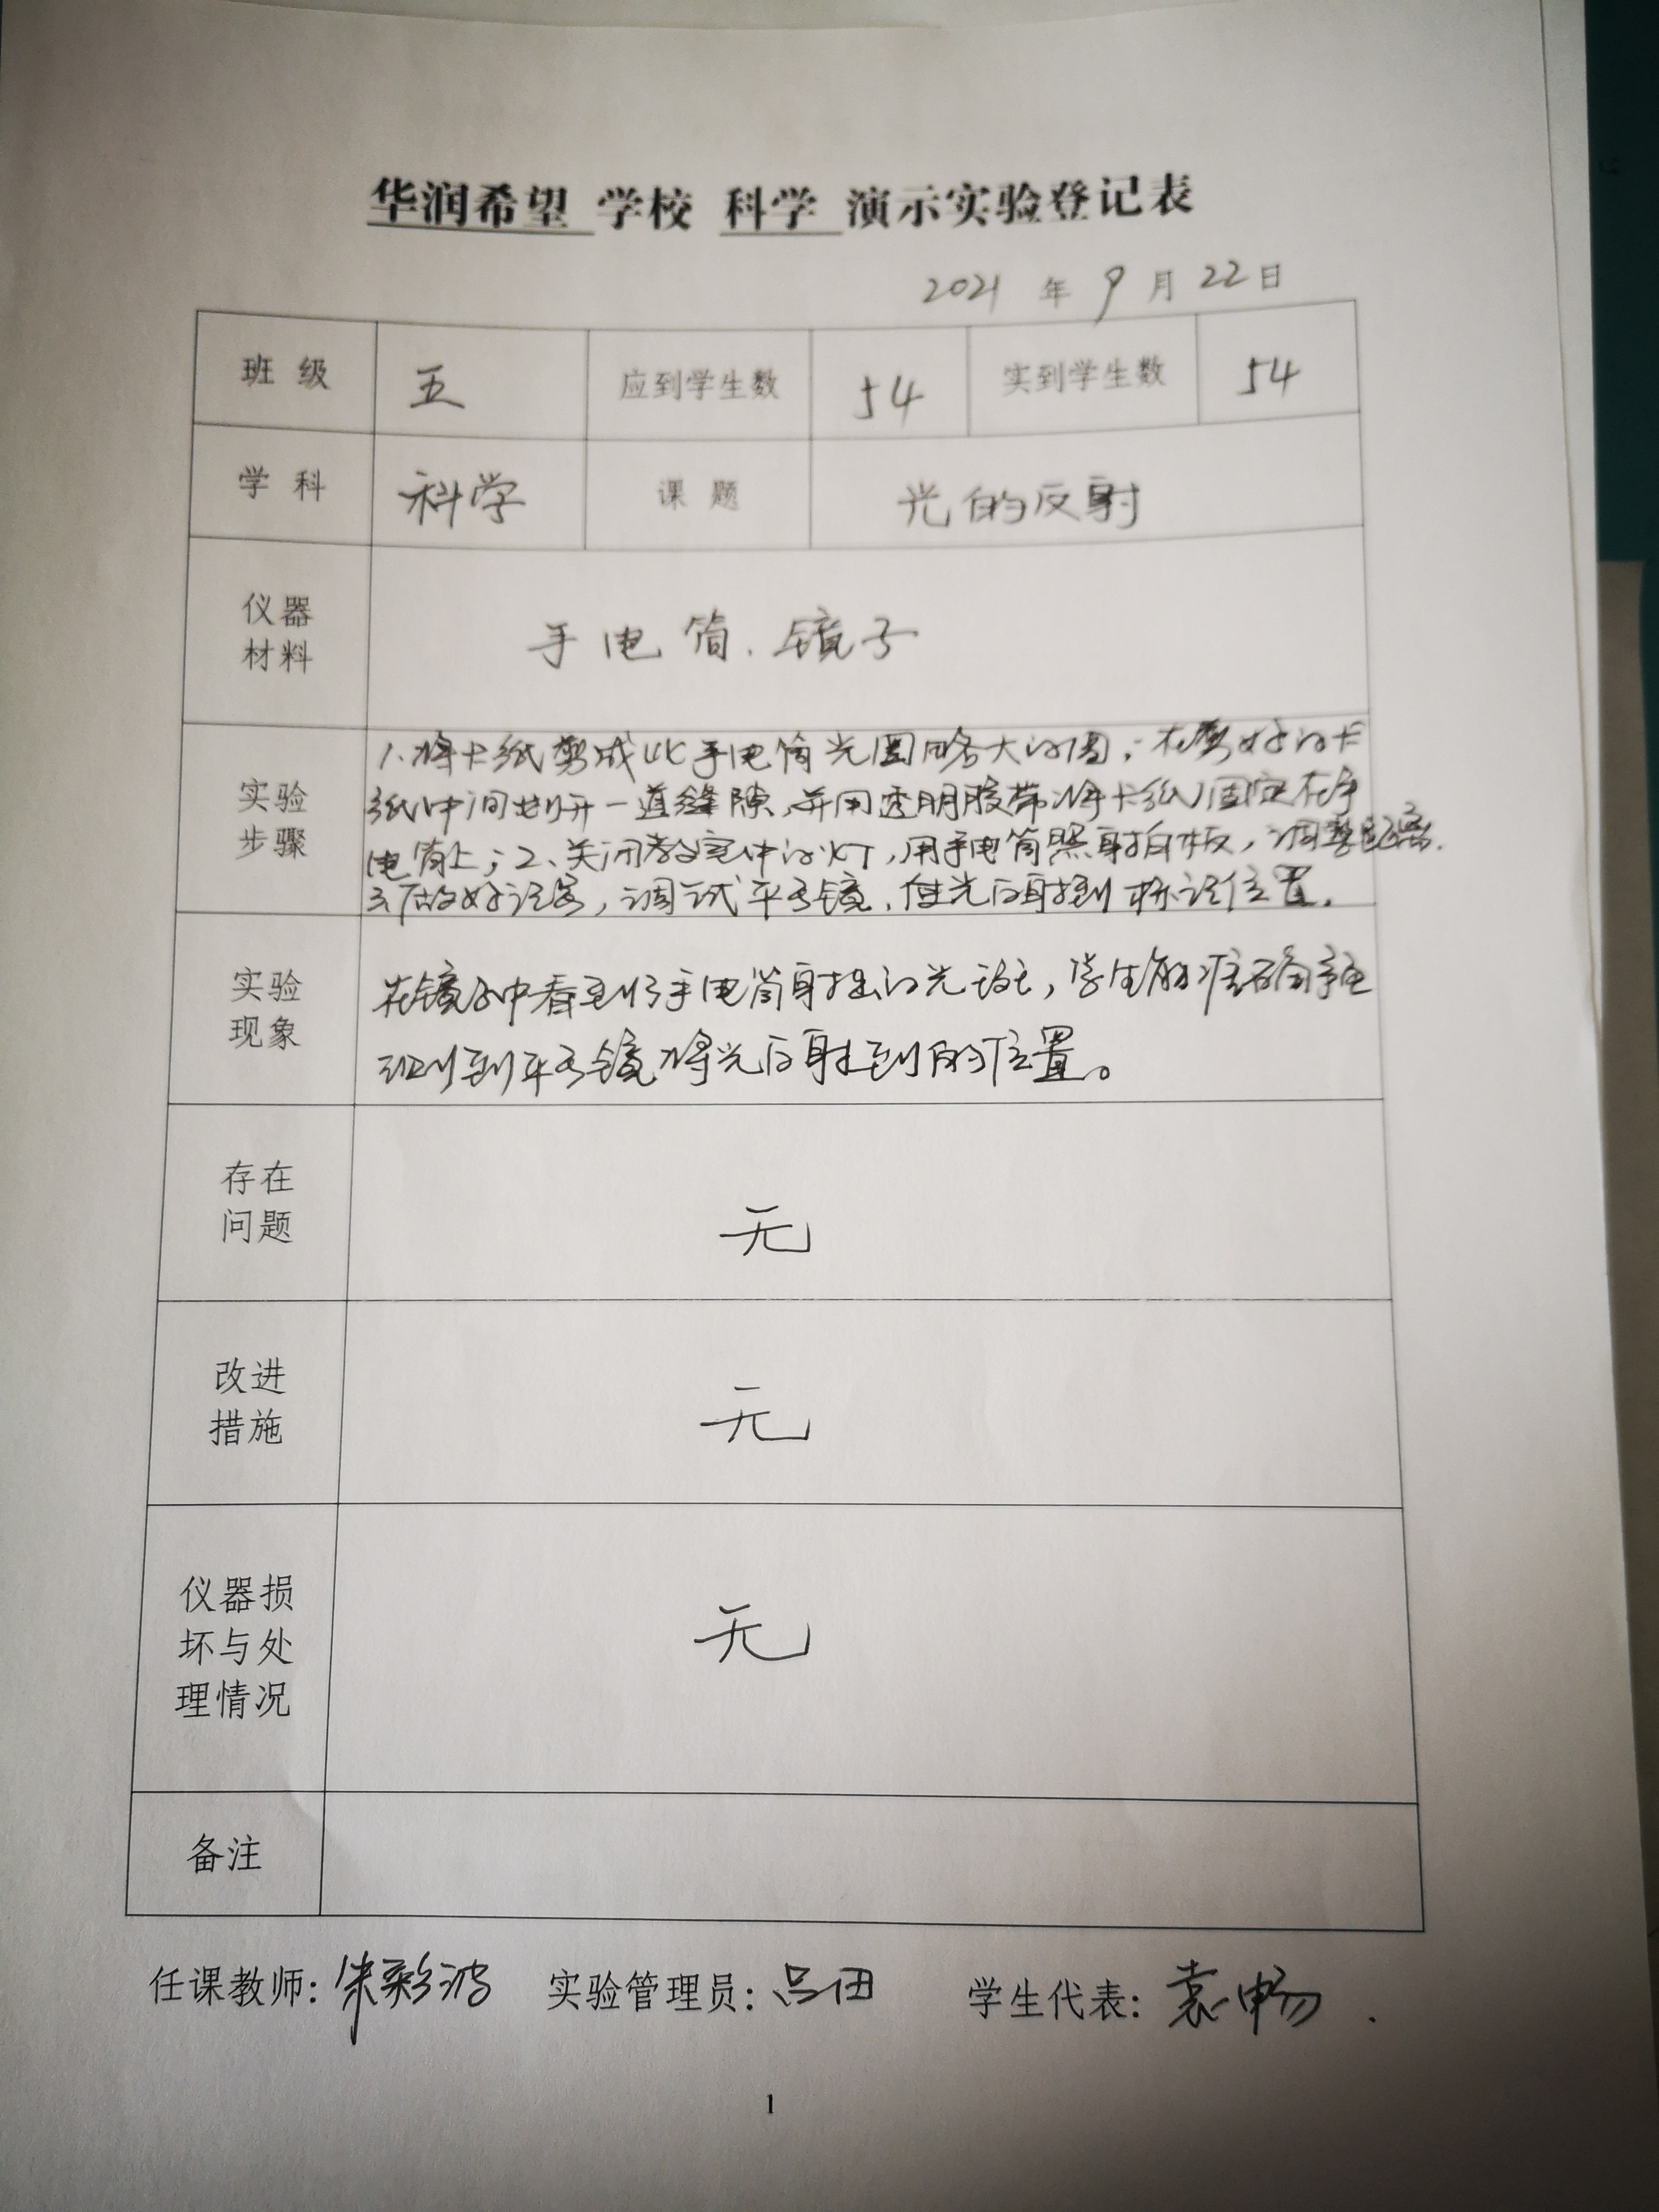 华润希望 学校 科学 演示实验登记表
2021 年 9 月 22 日
班 级 五 应到学生数 54 实到学生数 54
学 科 科学 课 题 光的反射
仪器
材料
手电筒、镜子
实验
步骤
1、将卡纸剪成比手电筒光圈略大的圆；在剪好的卡
纸中间划开一道缝隙，并用透明胶带将卡纸固定在手
电筒上；2、关闭教室中的灯，用手电筒照射白板，调整距离.
3、做好记号，调试平面镜，使光反射到标记位置。
实验
现象
在镜子中看到了手电筒射出的光斑，学生能准确
到平面镜将光反射到的位置。
存在
问题
无
改进
措施
无
仪器损
坏与处
理情况
无
备注
任课教师：朱彩波 实验管理员：吕田 学生代表：袁畅
1